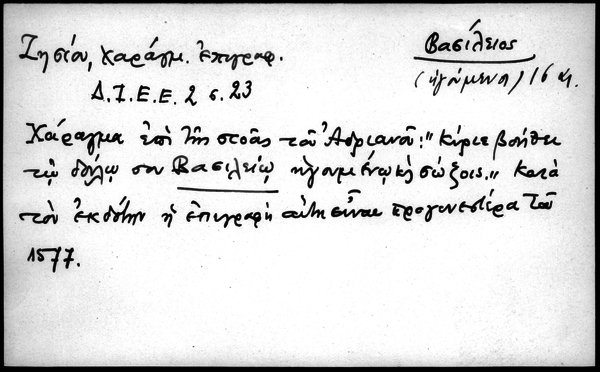 Ζησίου, Χαράγμ. ἐπιγραφ.
Βασίλειος
Δ.Ι.Ε.Ε. 2 σ. 23
(ἡγούμενος) 16 αἰ.
Χάραγμα ἐπὶ τῆς στοᾶς τοῦ Ἀδριανοῦ: "Κύριε βοήθει
τῷ δούλῳ σου Βασιλείῳ ἡγουμένῳ κὲ σώξοις." Κατὰ
τὸν ἐκδότην ἡ ἐπιγραφὴ αὕτη εἶναι προγενεστέρα τοῦ
1577.